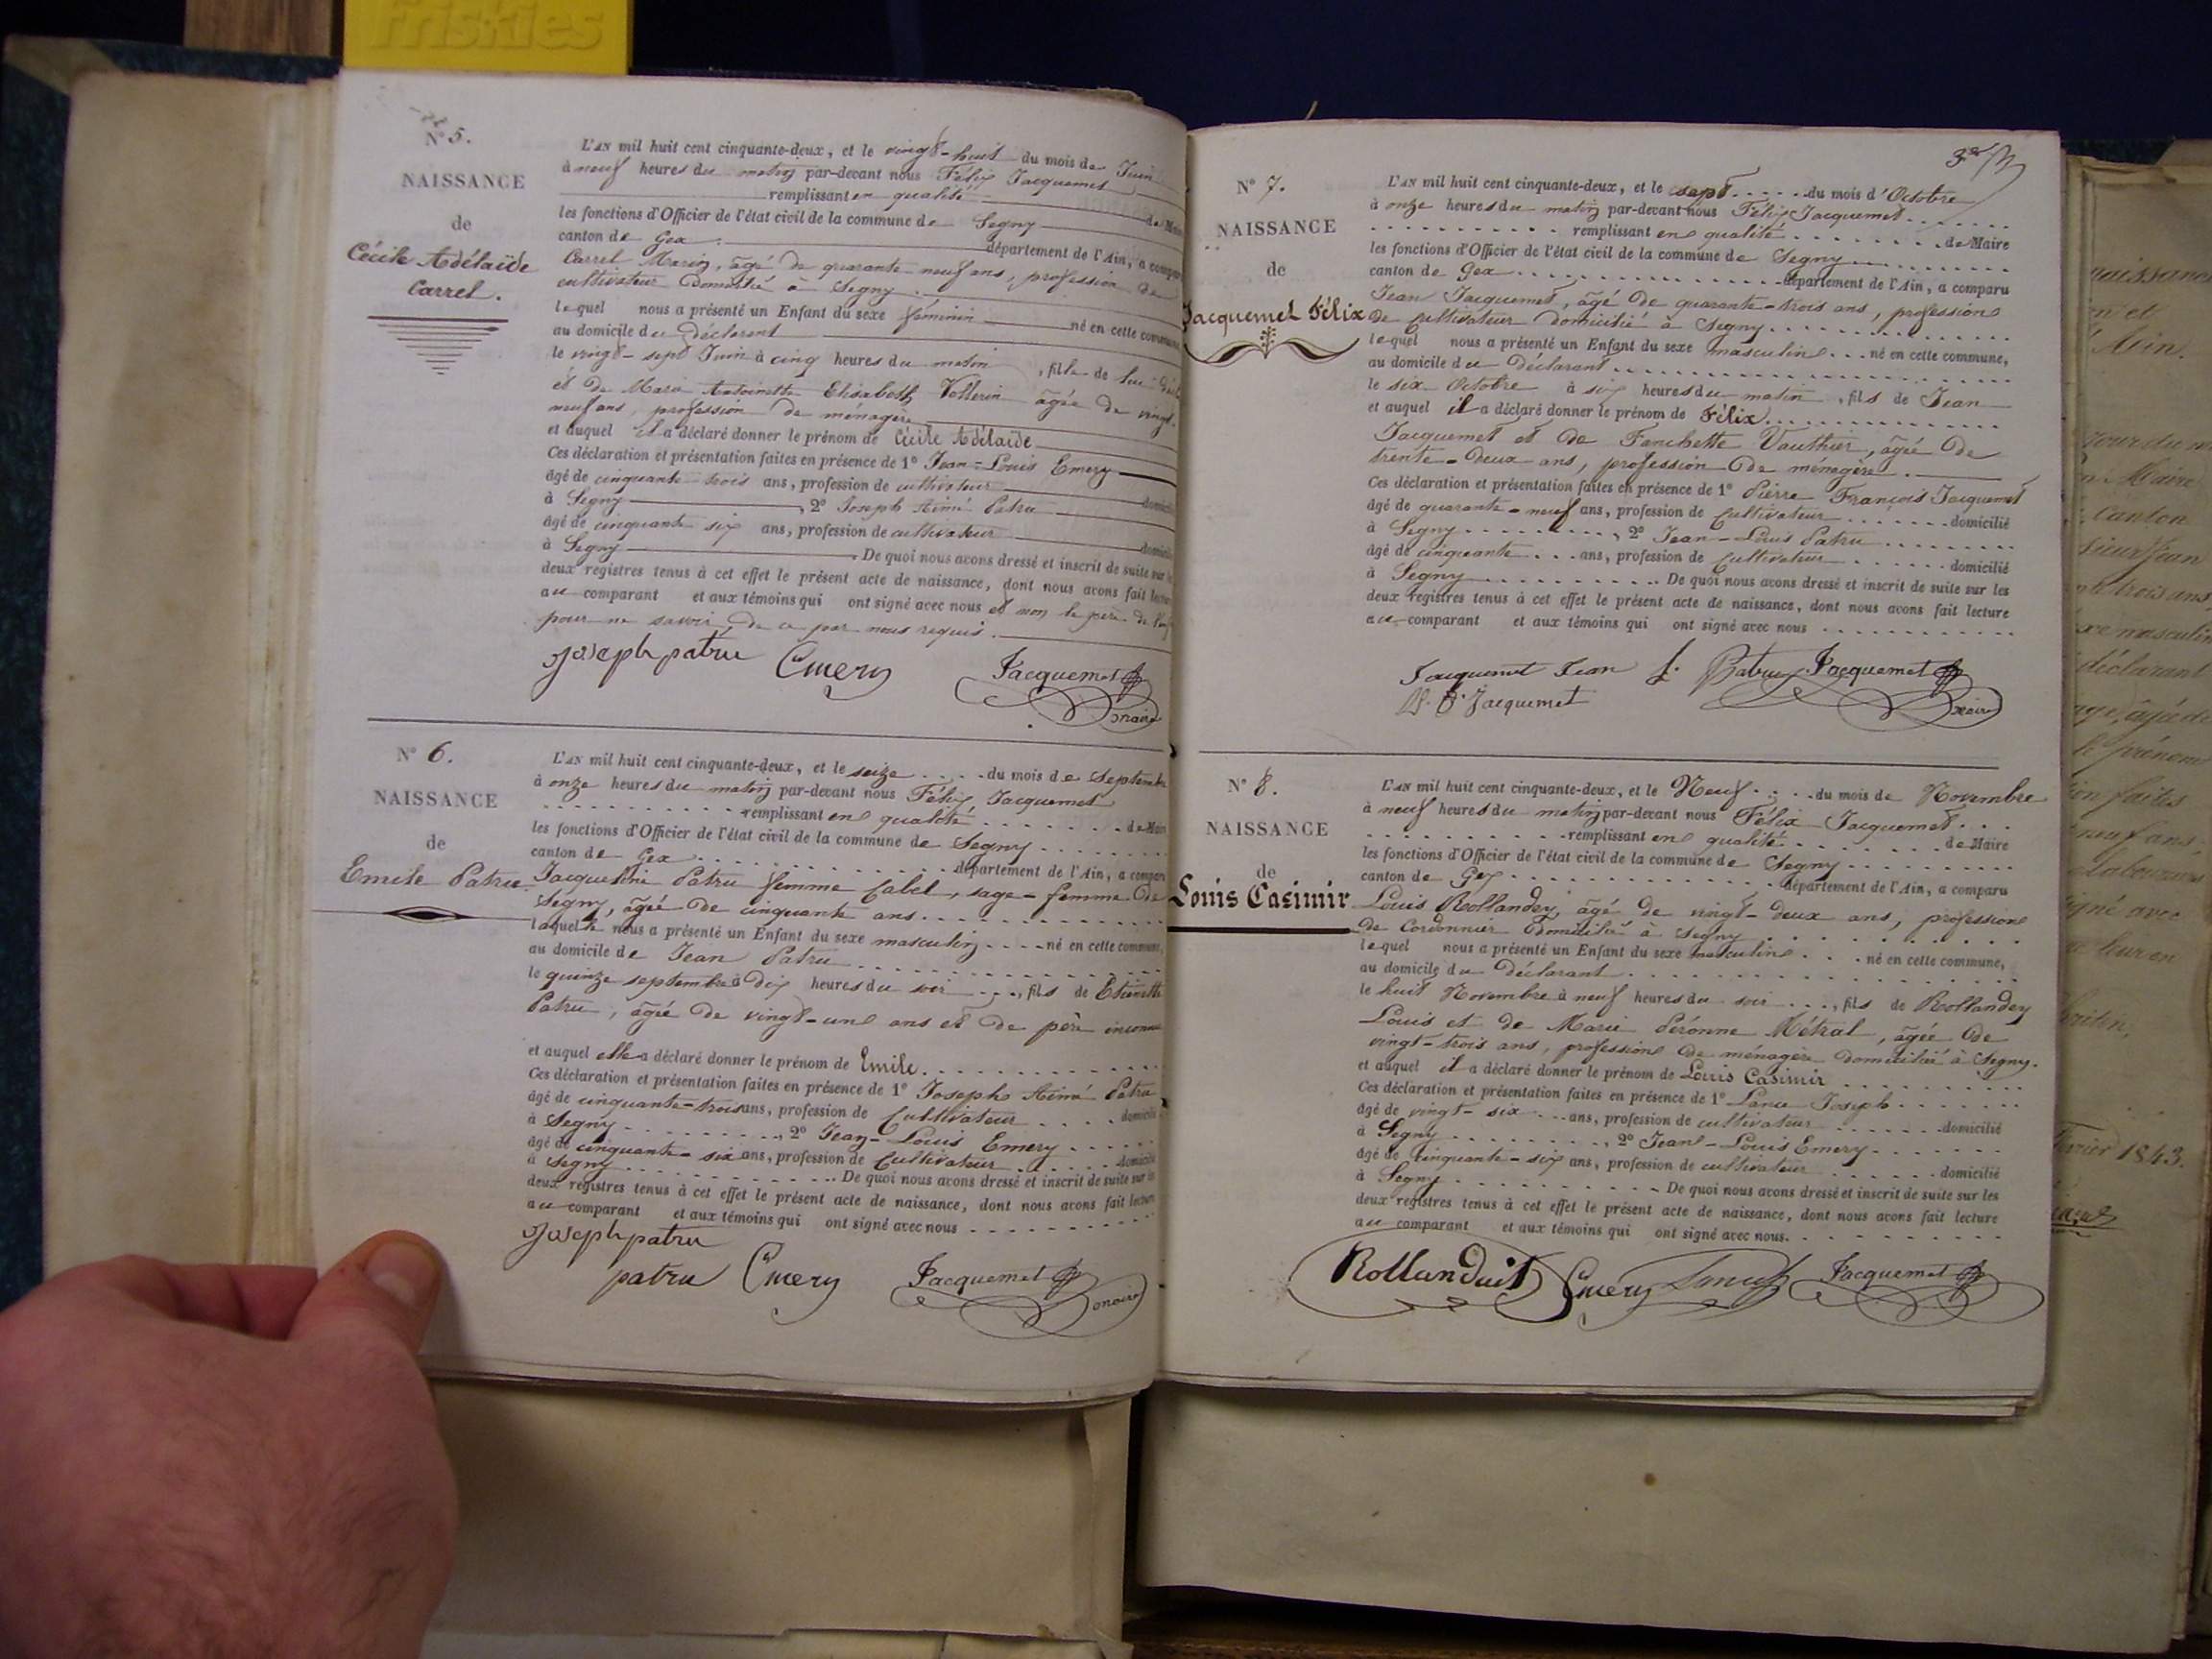 friskies
N° 5.
NAISSANCE
de
Cécile Adélaïde
Carrel.
L'AN mil huit cent cinquante-deux, et le vingt-huit du mois de Juin
à neuf heures du matin par-devant nous Félix Jacquemet
remplissant en qualité de Maire
les fonctions d'Officier de l'état civil de la commune de Segny
canton de Gex département de l'Ain, a comparu
Carrel Marin, âgé de quarante neuf ans, profession de
cultivateur domicilié à Segny
lequel nous a présenté un Enfant du sexe féminin né en cette commune
au domicile du déclarent
le vingt-sept Juin à cinq heures du matin, fille de lui
et de Marie Antoinette Elisabeth Vellerin âgée de vingt-
neuf ans, profession de ménagère
et auquel il a déclaré donner le prénom de Cécile Adélaïde
Ces déclaration et présentation faites en présence de 1° Jean-Louis Emery
âgé de cinquante trois ans, profession de cultivateur domicilié
à Segny, 2° Joseph Aimé Patru
âgé de cinquante six ans, profession de cultivateur domicilié
à Segny. De quoi nous avons dressé et inscrit de suite sur les
deux registres tenus à cet effet le présent acte de naissance, dont nous avons fait lecture
au comparant et aux témoins qui ont signé avec nous et non le père de
pour ne savoir, de ce par nous requis.
Joseph patru Emery Jacquemet
maire
N° 6.
NAISSANCE
de
Emile Patru
L'AN mil huit cent cinquante-deux, et le seize du mois de Septembre
à onze heures du matin par-devant nous Félix Jacquemet
remplissant en qualité de Maire
les fonctions d'Officier de l'état civil de la commune de Segny
canton de Gex département de l'Ain, a comparu
Jacqueline Patru femme Cabel, sage-femme de
Segny, âgée de cinquante ans
laquelle nous a présenté un Enfant du sexe masculin né en cette commune,
au domicile de Jean Patru
le quinze septembre à dix heures du soir, fils de Etiennette
Patru, âgée de vingt-un ans et de père inconnu
et auquel elle a déclaré donner le prénom de Emile
Ces déclaration et présentation faites en présence de 1° Joseph Aimé Patru
âgé de cinquante-trois ans, profession de Cultivateur domicilié
à Segny, 2° Jean-Louis Emery
âgé de cinquante-six ans, profession de Cultivateur domicilié
à Segny. De quoi nous avons dressé et inscrit de suite sur les
deux registres tenus à cet effet le présent acte de naissance, dont nous avons fait lecture
au comparant et aux témoins qui ont signé avec nous
Joseph patru
patru Emery Jacquemet
maire
N° 7.
NAISSANCE
de
Jacquemet Félix
L'AN mil huit cent cinquante-deux, et le sept du mois d'Octobre
à onze heures du matin par-devant nous Félix Jacquemet
remplissant en qualité de Maire
les fonctions d'Officier de l'état civil de la commune de Segny
canton de Gex département de l'Ain, a comparu
Jean Jacquemet, âgé de quarante-trois ans, profession
de Cultivateur domicilié à Segny
lequel nous a présenté un Enfant du sexe masculin né en cette commune,
au domicile du déclarant
le six Octobre à six heures du matin, fils de Jean
et auquel il a déclaré donner le prénom de Félix
Jacquemet et de Fanchette Vauthier, âgée de
trente-deux ans, profession de ménagère.
Ces déclaration et présentation faites en présence de 1° Pierre François Jacquemet
âgé de quarante-neuf ans, profession de Cultivateur domicilié
à Segny, 2° Jean-Louis Patru
âgé de cinquante ans, profession de Cultivateur domicilié
à Segny. De quoi nous avons dressé et inscrit de suite sur les
deux registres tenus à cet effet le présent acte de naissance, dont nous avons fait lecture
au comparant et aux témoins qui ont signé avec nous
Jacquemet Jean Patru Jacquemet
Jacquemet maire
N° 8.
NAISSANCE
de
Louis Casimir
L'AN mil huit cent cinquante-deux, et le Neuf du mois de Novembre
à neuf heures du matin par-devant nous Félix Jacquemet
remplissant en qualité de Maire
les fonctions d'Officier de l'état civil de la commune de Segny
canton de Gex département de l'Ain, a comparu
Louis Rollandey, âgé de vingt-deux ans, profession
de Cordonnier domicilié à Segny
lequel nous a présenté un Enfant du sexe masculin né en cette commune,
au domicile du déclarant
le huit Novembre à neuf heures du soir, fils de Rollandey
Louis et de Marie Péronne Métral, âgée de
vingt-trois ans, profession de ménagère domiciliée à Segny.
et auquel il a déclaré donner le prénom de Louis Casimir
Ces déclaration et présentation faites en présence de 1° Lance Joseph
âgé de vingt-six ans, profession de cultivateur domicilié
à Segny, 2° Jean-Louis Emery
âgé de cinquante-six ans, profession de cultivateur domicilié
à Segny. De quoi nous avons dressé et inscrit de suite sur les
deux registres tenus à cet effet le présent acte de naissance, dont nous avons fait lecture
au comparant et aux témoins qui ont signé avec nous.
Emery Jacquemet
Maire
canton
trois ans
masculin
déclarant
prénom
faites
neuf ans
avec
1843.